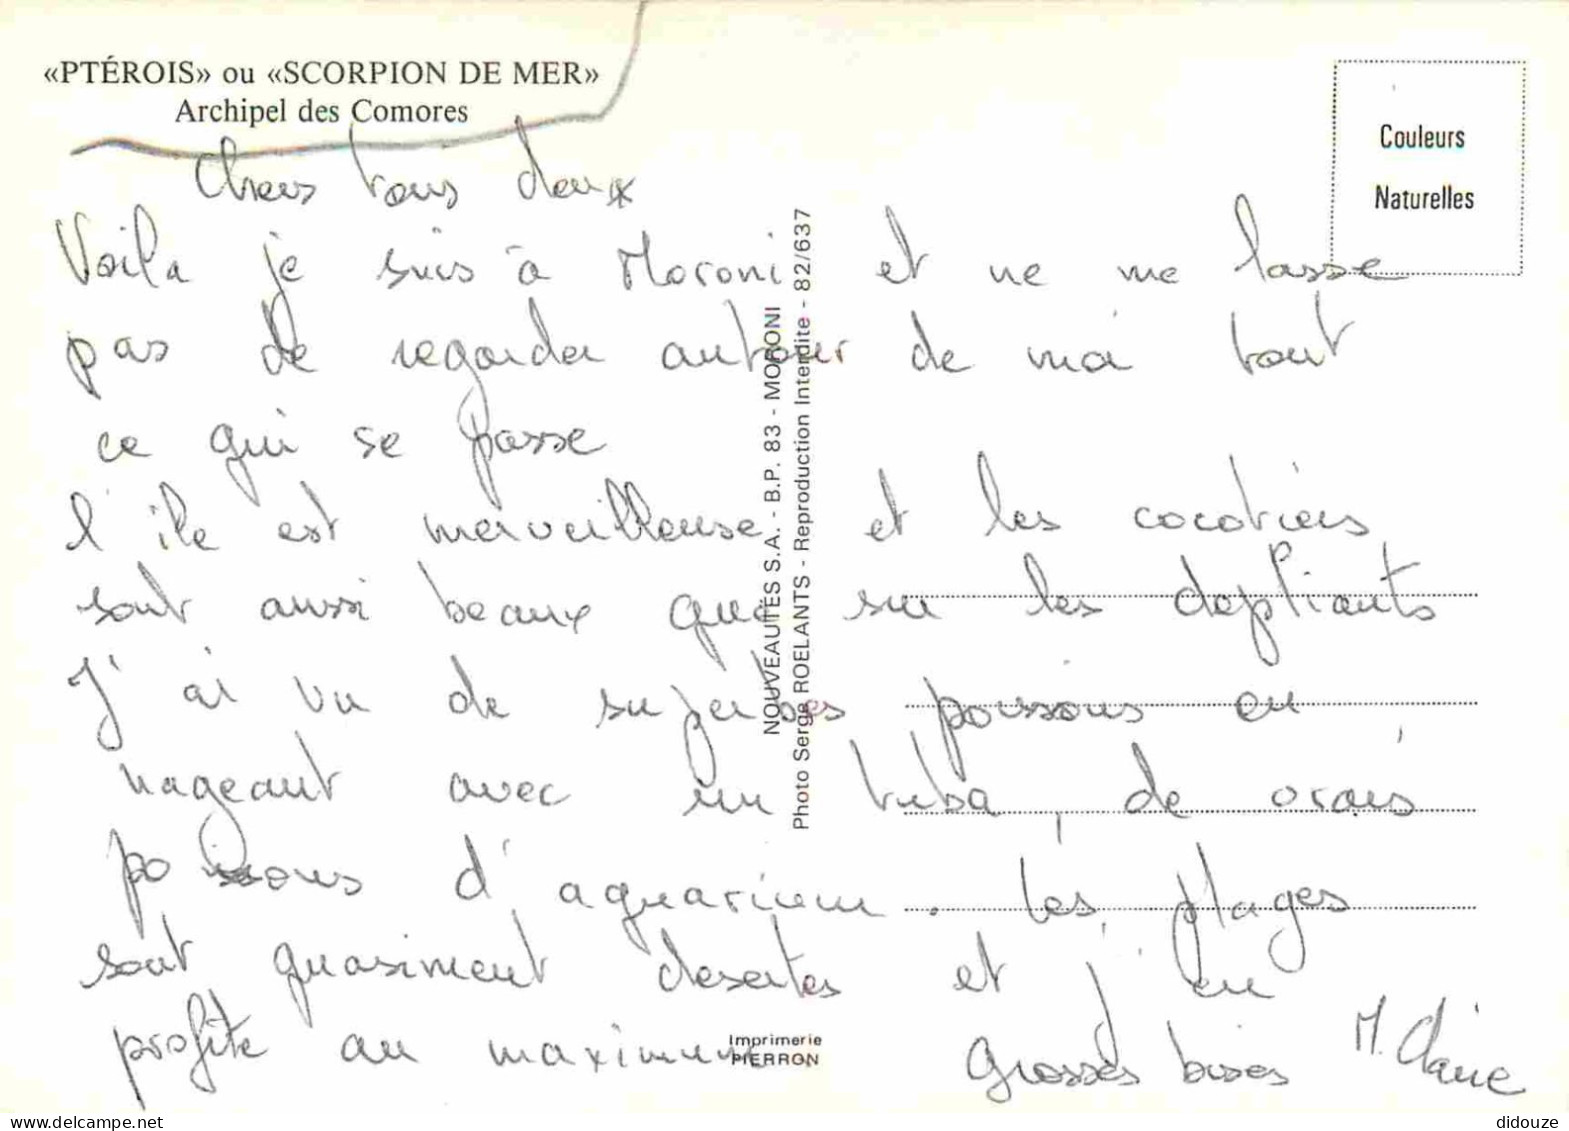 «PTÉROIS» ou «SCORPION DE MER»
Archipel des Comores
Couleurs
Naturelles
Chers tous deux
Voila je suis à Moroni et ne me lasse
pas de regarder autour de moi tout
ce qui se passe
l'île est merveilleuse et les cocotiers
sont aussi beaux que sur les depliants
J'ai vu de superbes poissons en
nageant avec un tuba, de vrais
poissons d'aquarium. Les plages
sont quasiment desertes et j'en
profite au maximum.
Grosses bises M. Claire
NOUVEAUTES S.A. - B.P. 83 - MORONI
Photo Serge ROELANTS - Reproduction Interdite - 82/637
Imprimerie
PIERRON
delcampe.net
didouze